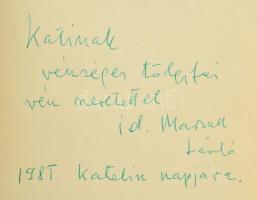 Katinak
vénséges tölgyfái
vén szeretettel
id. Marsall
László
1985 Katalin napjára.